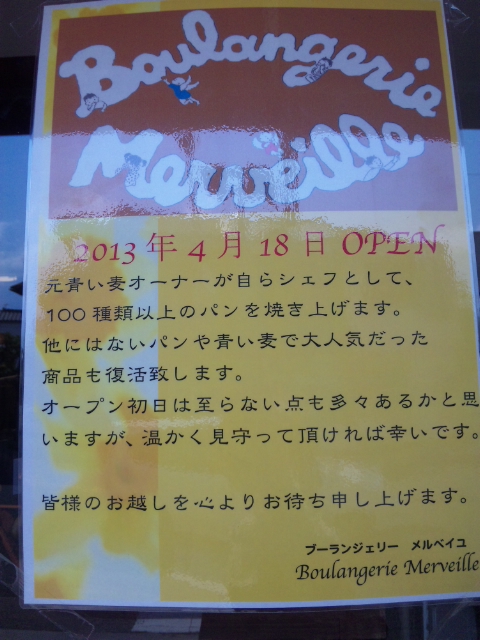 Boulangerie
Merveille
2013年4月18日 OPEN
元青い麦オーナーが自らシェフとして、
100種類以上のパンを焼き上げます。
他にはないパンや青い麦で大人気だった
商品も復活致します。
オープン初日は至らない点も多々あるかと思
いますが、温かく見守って頂ければ幸いです。
皆様のお越しを心よりお待ち申し上げます。
ブーランジェリー メルベイユ
Boulangerie Merveille